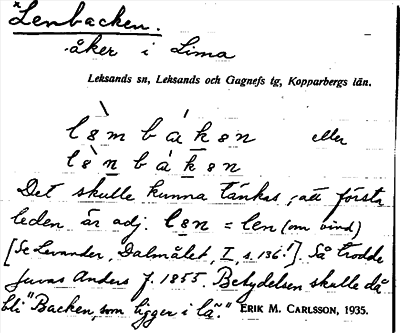 *Lenbacken.
åker i Lima
Leksands sn, Leksands och Gagnefs tg, Kopparbergs län.
lə̀m bákən eller
lə̀n bákən
Det skulle kunna tänkas, att första
leden är adj. lən = len (om vind)
[Se Levander, Dalmålet, I, s. 136!]. Så trodde
Juvas Anders f. 1855. Betydelsen skulle då
bli "Backen, som ligger i lä". ERIK M. CARLSSON, 1935.